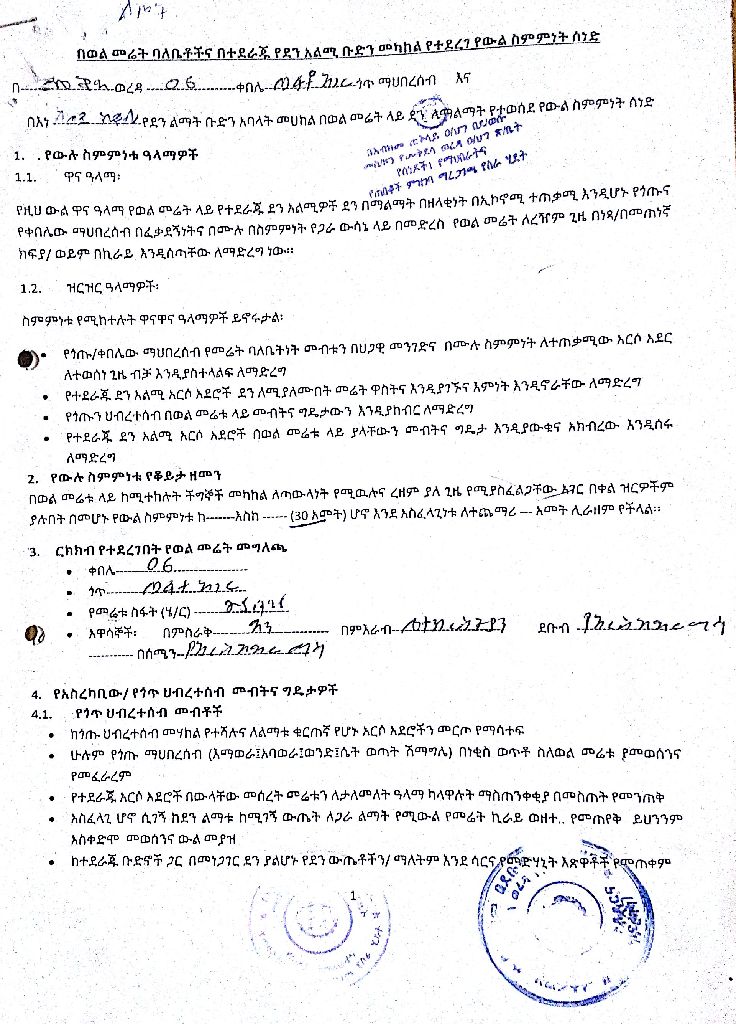 በወል መሬት ባለቤቶችና በተደራጁ የደን አልሚ ቡድን መካከል የተደረገ የውል ስምምነት ሰነድ
በ ወረዳ 06 ቀበሌ ጎጥ ማህበረሰብ እና
በእነ የደን ልማት ቡድን አባላት መሀከል በወል መሬት ላይ ደን ለማልማት የተወሰደ የውል ስምምነት ሰነድ
1. . የውሉ ስምምነቱ ዓላማዎች
1.1. ዋና ዓላማ፡
የዚህ ውል ዋና ዓላማ የወል መሬት ላይ የተደራጁ ደን አልሚዎች ደን በማልማት በዘላቂነት በኢኮኖሚ ተጠቃሚ እንዲሆኑ የጎጡና
የቀበሌው ማህበረሰብ በፈቃደኝነትና በሙሉ በስምምነት የጋራ ውሳኔ ላይ በመድረስ የወል መሬት ለረዥም ጊዜ በነጻ/በመጠነኛ
ክፍያ/ ወይም በኪራይ እንዲሰጣቸው ለማድረግ ነው።
1.2. ዝርዝር ዓላማዎች፡
ስምምነቱ የሚከተሉት ዋናዋና ዓላማዎች ይኖሩታል፡
• የጎጡ/ቀበሌው ማህበረሰብ የመሬት ባለቤትነት መብቱን በህጋዊ መንገድና በሙሉ ስምምነት ለተጠቃሚው አርሶ አደር
ለተወሰነ ጊዜ ብቻ እንዲያስተላልፍ ለማድረግ
• የተደራጁ ደን አልሚ አርሶ አደሮች ደን ለሚያለሙበት መሬት ዋስትና እንዲያገኙና እምነት እንዲኖራቸው ለማድረግ
• የጎጡን ህብረተሰብ በወል መሬቱ ላይ መብትና ግዴታውን እንዲያከብር ለማድረግ
• የተደራጁ ደን አልሚ አርሶ አደሮች በወል መሬቱ ላይ ያላቸውን መብትና ግዴታ እንዲያውቁና አክብረው እንዲሰሩ
ለማድረግ
2. የውሉ ስምምነቱ የቆይታ ዘመን
በወል መሬቱ ላይ ከሚተከሉት ችግኞች መካከል ለጣውላነት የሚውሉና ረዘም ያለ ጊዜ የሚያስፈልጋቸው አገር በቀል ዝርዎችም
ያሉበት በመሆኑ የውል ስምምነቱ ከ-------እስከ ------ (30 አመት) ሆኖ እንደ አስፈላጊነቱ ለተጨማሪ --- አመት ሊራዘም የችላል።
3. ርክክብ የተደረገበት የወል መሬት መግለጫ
• ቀበሌ 06
• ጎጥ
• የመሬቱ ስፋት (ሄ/ር)
• አዋሳኞች፡ በምስራቅ በምእራብ ደቡብ
በሰሜን
4. የአስረካቢው/ የጎጥ ህብረተሰብ መብትና ግዴታዎች
4.1. የጎጥ ህብረተሰብ መብቶች
• ከጎጡ ህብረተሰብ መሃከል የተሻሉና ለልማቱ ቁርጠኛ የሆኑ አርሶ አደሮችን መርጦ የማሳተፍ
• ሁሉም የጎጡ ማህበረሰብ (እማወራ፤አባወራ፤ወንድ፤ሴት ወጣት ሽማግሌ) በነቂስ ወጥቶ ስለወል መሬቱ የመወሰንና
የመፈራረም
• የተደራጁ አርሶ አደሮች በውላቸው መሰረት መሬቱን ለታለመለት ዓላማ ካላዋሉት ማስጠንቀቂያ በመስጠት የመንጠቅ
• አስፈላጊ ሆኖ ሲገኝ ከደን ልማቱ ከሚገኝ ውጤት ለጋራ ልማት የሚውል የመሬት ኪራይ ወዘተ.. የመጠየቅ ይህንንም
አስቀድሞ መወሰንና ውል መያዝ
• ከተደራጁ ቡድኖች ጋር በመነጋገር ደን ያልሆኑ የደን ውጤቶችን/ ማለትም እንደ ሳርና የመድሃኒት እጽዋቶች የመጠቀም
1